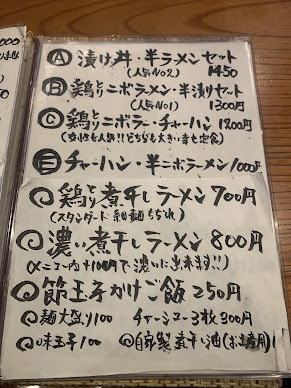 Ⓐ 漬け丼・半ラーメンセット
(人気No2) 1450
Ⓑ 鶏ニボラーメン・半漬りセット
(人気No1) 1300円
Ⓒ 鶏ニボラー・チャーハン 1200円
(女性も人気!!どちらも大きい幸せ定食)
チャーハン・半ニボラーメン 1000円
◎鶏煮干しラーメン 700円
(スタンダード 細麺もちろん)
◎濃い煮干しラーメン 800円
(メニュー内+100円で濃いに出来ます!!)
◎節玉子かけご飯 250円
◎麺大盛り100 チャーシュー3枚 300円
◎味玉子100 ◎自家製煮干し油(お土産用)